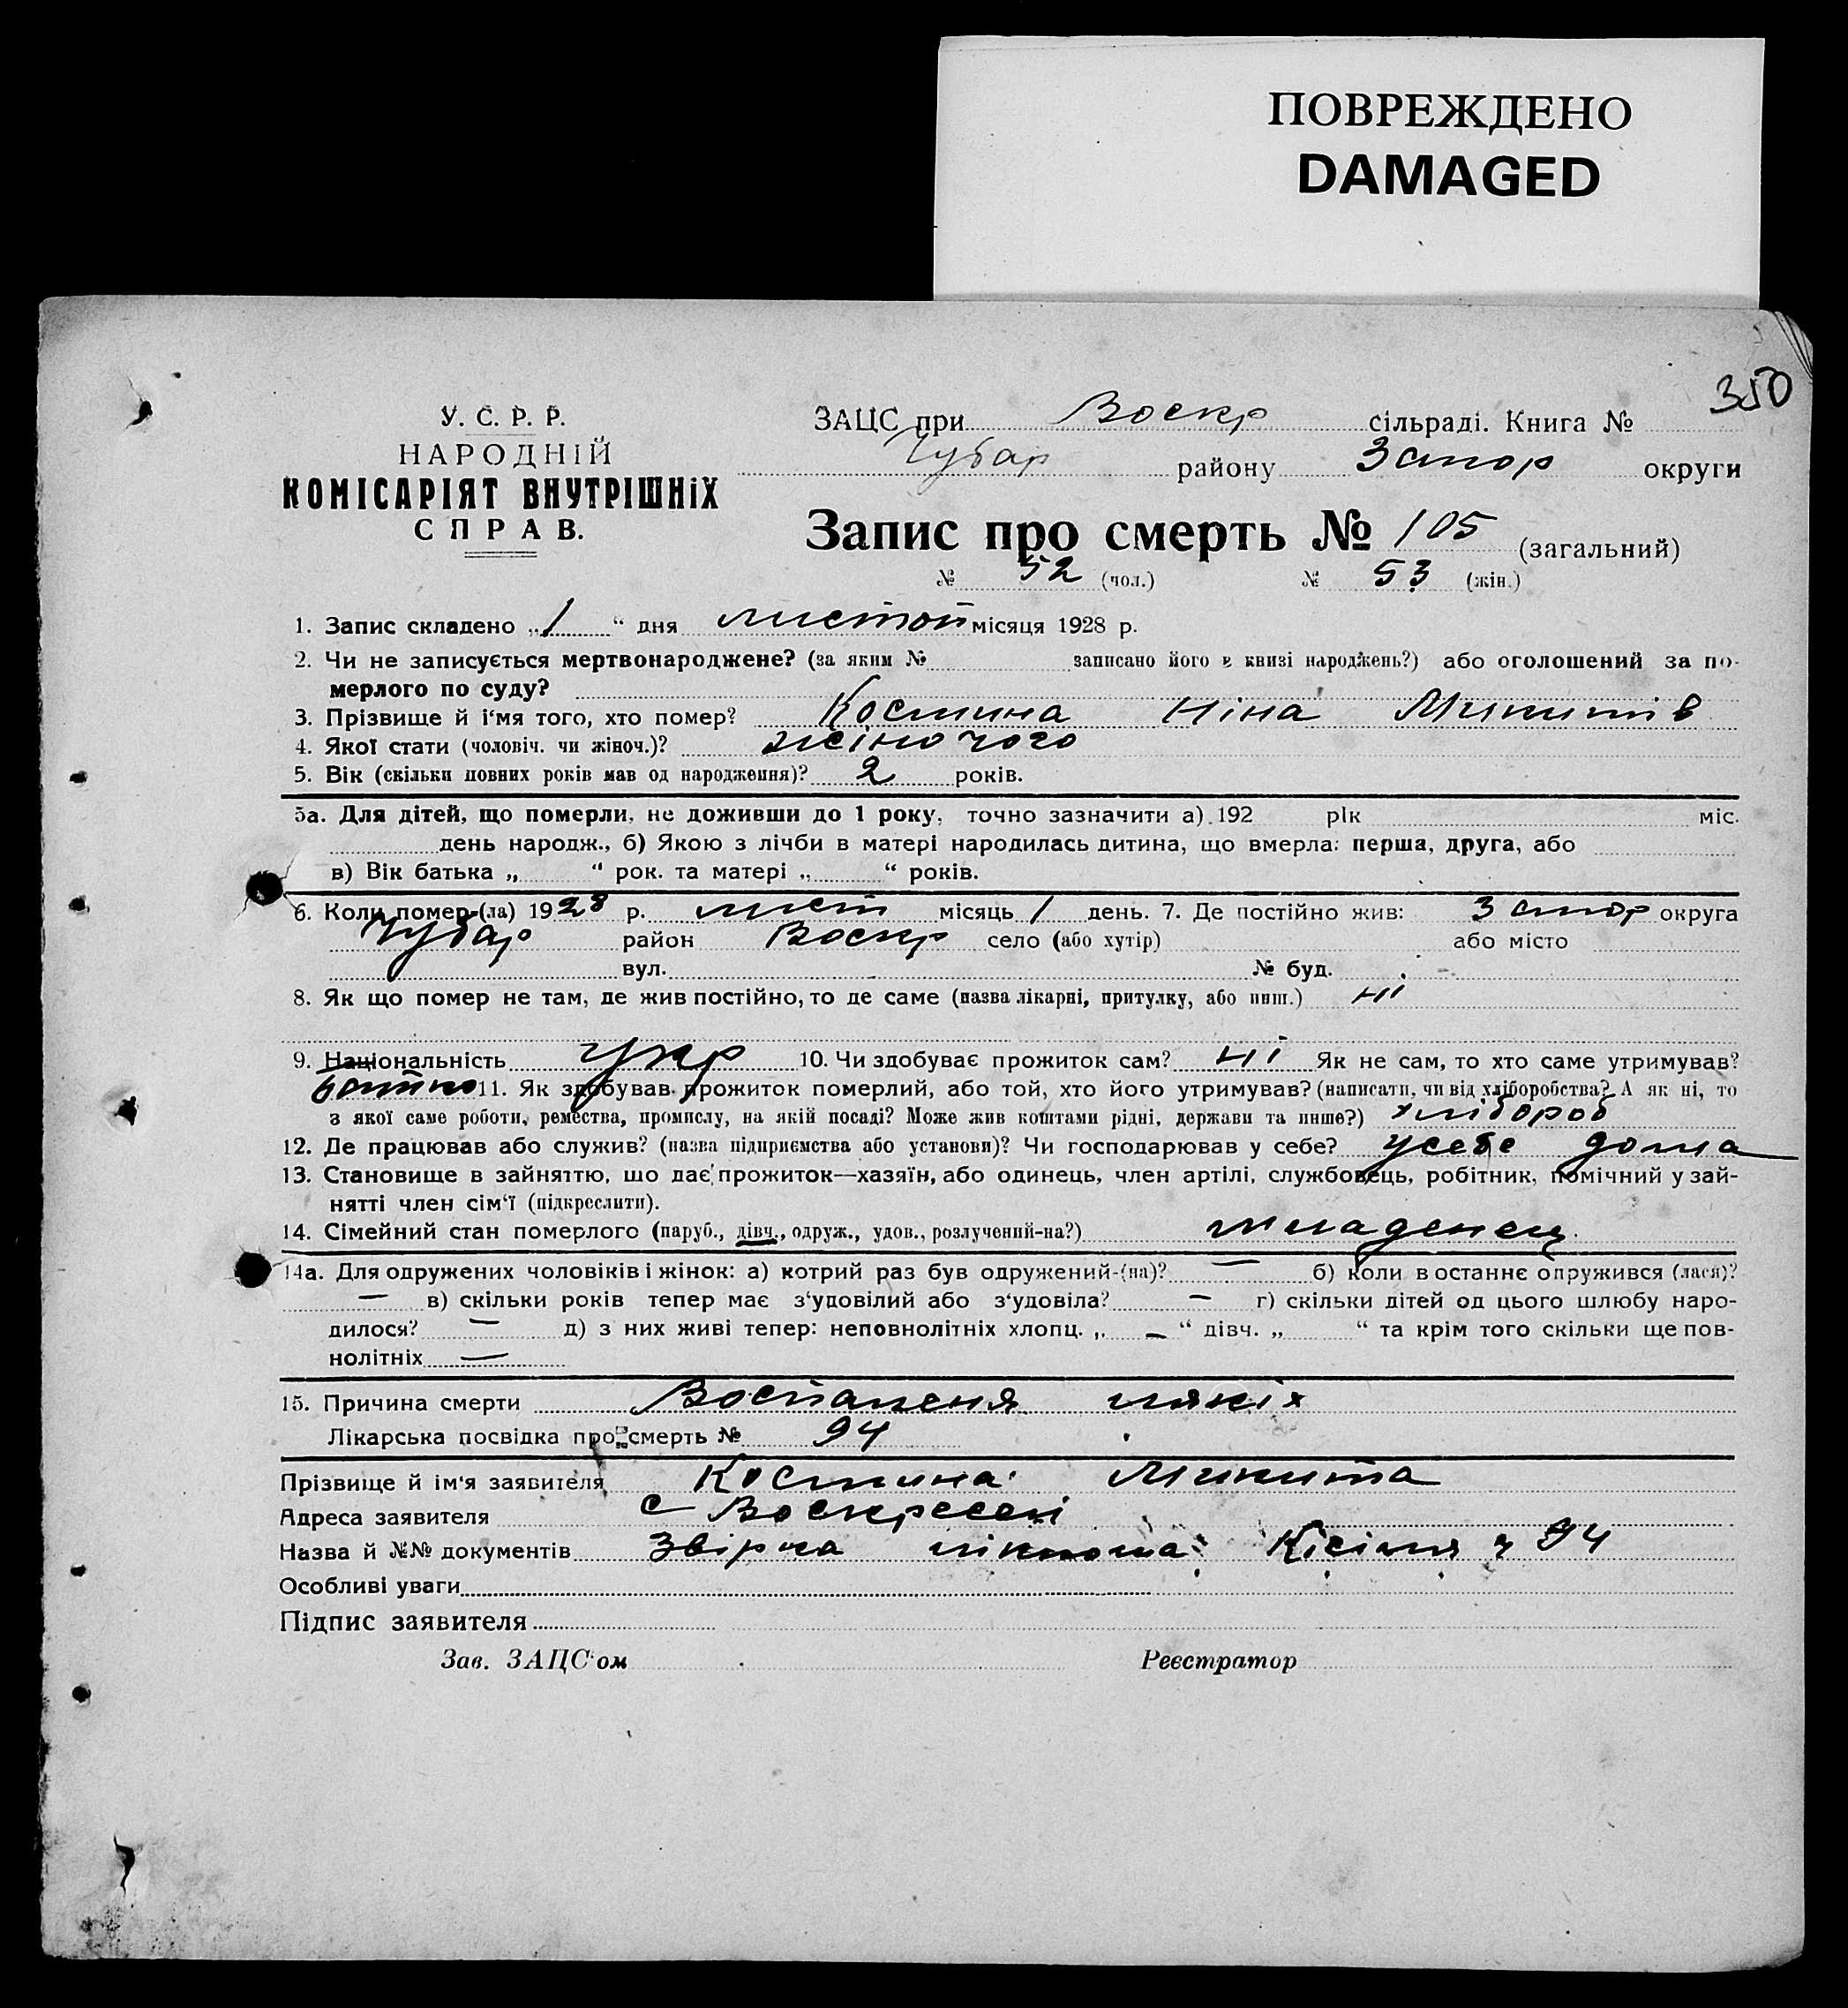 ПОВРЕЖДЕНО
DAMAGED
350
У. С. Р. Р.
НАРОДНІЙ
КОМІСАРІЯТ ВНУТРІШНІХ
СПРАВ.
ЗАЦС при Воскр сільраді. Книга №
Чубар району Запор округи
Запис про смерть № 105 (загальний)
№ 52 (чол.) № 53 (жін.)
1. Запис складено „1“ дня листоп місяця 1928 р.
2. Чи не записується мертвонароджене? (за яким № записано його в книзі народжень?) або оголошений за по-
мерлого по суду?
3. Прізвище й і'мя того, хто помер? Костина Ніна Микитів
4. Якої стати (чоловіч. чи жіноч.)? жіночого
5. Вік (скільки повних років мав од народження)? 2 років.
5а. Для дітей, що померли, не доживши до 1 року, точно зазначити а) 192 рік міс.
день народж., б) Якою з лічби в матері народилась дитина, що вмерла: перша, друга, або
в) Вік батька „ “ рок. та матері „ “ років.
6. Коли помер-(ла) 1928 р. лист місяць 1 день. 7. Де постійно жив: Запор округа
Чубар район Воскр село (або хутір) або місто
вул. № буд.
8. Як що помер не там, де жив постійно, то де саме (назва лікарні, притулку, або инш.) ні
9. Національність укр 10. Чи здобуває прожиток сам? ні Як не сам, то хто саме утримував?
батько 11. Як здобував прожиток померлий, або той, хто його утримував? (написати, чи від хліборобства? А як ні, то
з якої саме роботи, ремества, промислу, на якій посаді? Може жив коштами рідні, держави та инше?) хлібороб
12. Де працював або служив? (назва підприємства або установи)? Чи господарював у себе? усебе дома
13. Становище в зайняттю, що дає прожиток—хазяїн, або одинець, член артілі, службовець, робітник, помічний у зай-
нятті член сім'ї (підкреслити).
14. Сімейний стан померлого (паруб., дівч., одруж., удов., розлучений-на?) младенец.
14а. Для одружених чоловіків і жінок: а) котрий раз був одружений-(на)? — б) коли в останнє одружився (лася)?
— в) скільки років тепер має з'удовілий або з'удовіла? — г) скільки дітей од цього шлюбу наро-
дилося? — д) з них живі тепер: неповнолітніх хлопц. „ — “ дівч. „ “ та крім того скільки ще пов-
нолітніх —
15. Причина смерти Воспаленя лякіх
Лікарська посвідка про смерть № 94
Прізвище й ім'я заявителя Костина Микита
Адреса заявителя с Воскресен
Назва й №№ документів 94
Особливі уваги
Підпис заявителя
Зав. ЗАЦС'ом Реєстратор